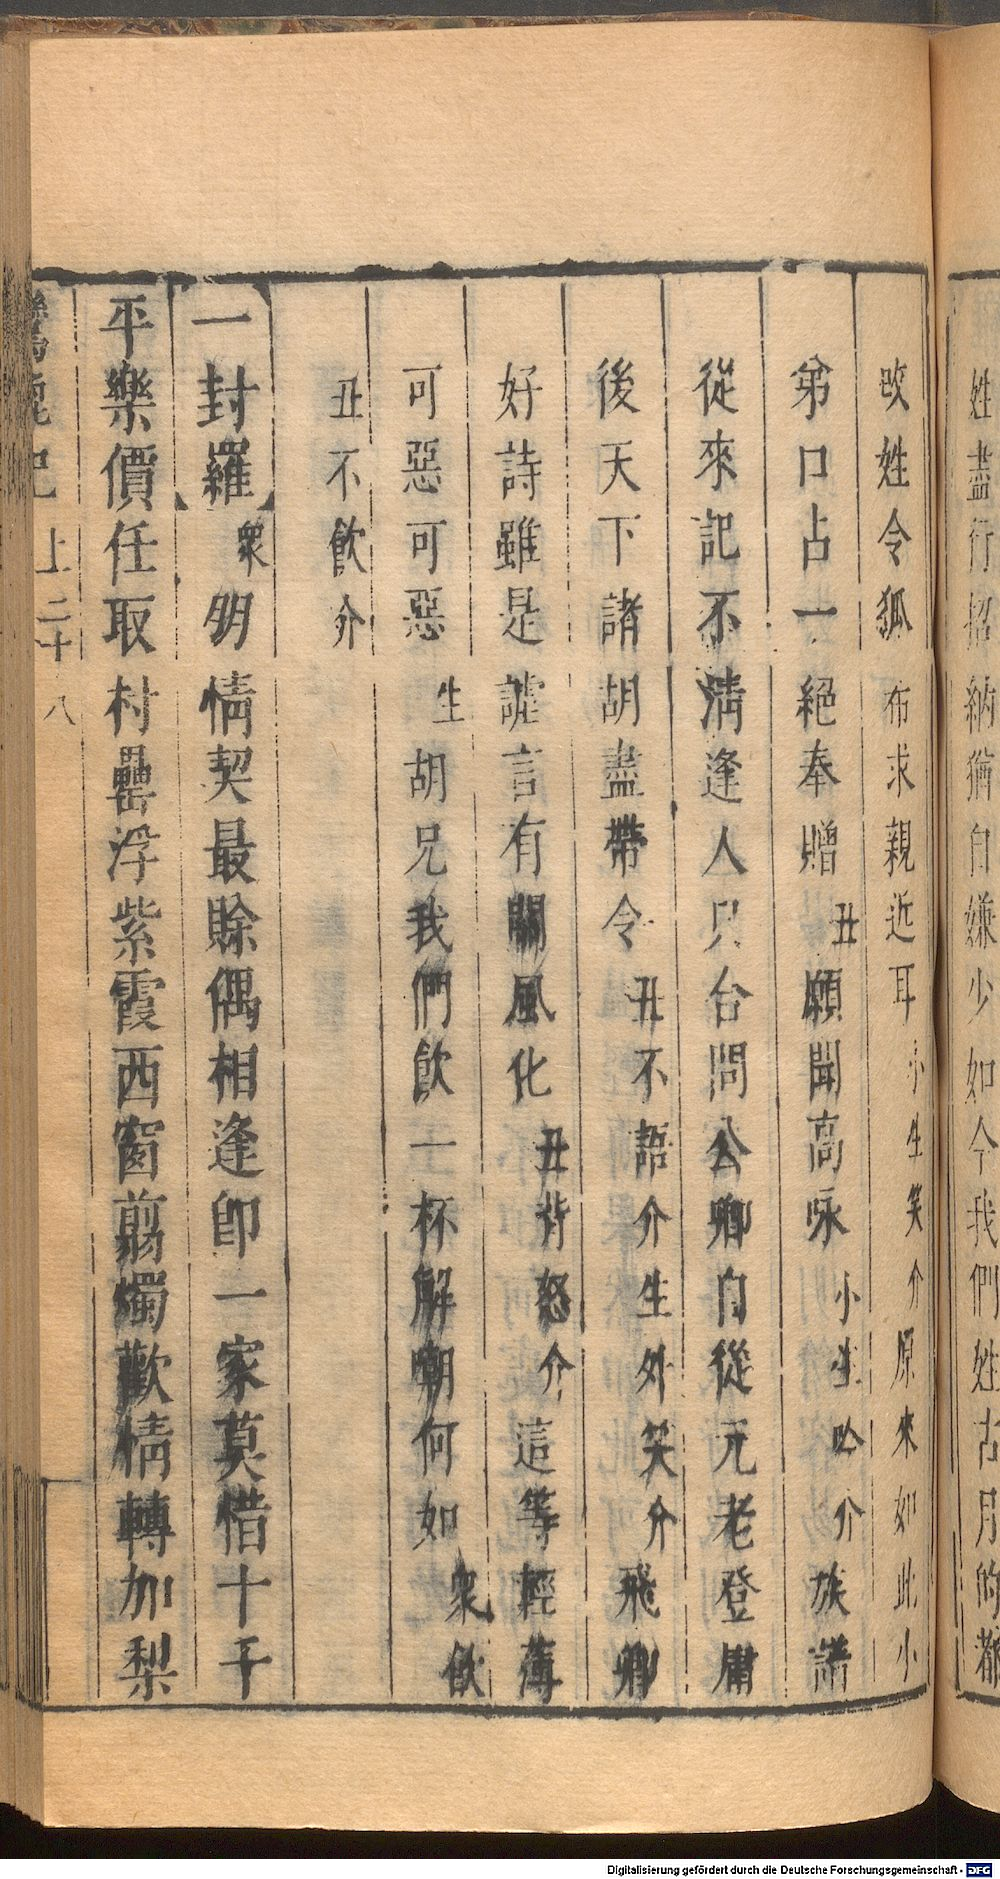 姓盡行招納猶自嫌少如今我們姓古月的都
改姓令狐布求親近耳小生笑介原來如此小
弟口占一絕奉贈丑願聞高咏小生吟介族譜
從來記不清逢人只合問公卿自從元老登庸
後天下諸胡盡帶令丑不語介生外笑介飛卿
好詩雖是謔言有關風化丑背怒介這等輕薄
可惡可惡生胡兄我們飲一杯解嘲何如眾飲
丑不飲介
一封羅眾朋情契最賒偶相逢即一家莫惜十千
平樂價任取村罍浮紫霞西窗剪燭歡情轉加梨
上二十八
Digitalisierung gefördert durch die Deutsche Forschungsgemeinschaft - DFG